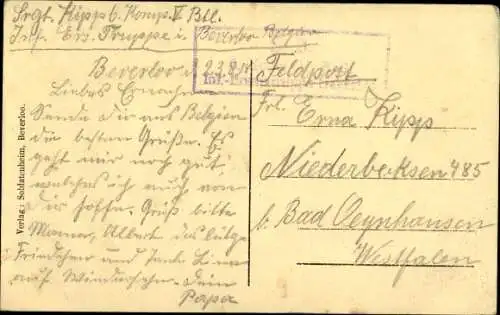 Srgt. Kipp 6. Komp. V Btl.
Inf. Ers. Truppe i. Beverloo Belgien
Beverloo d. 23.9.
Feldpost
Liebes Ernachen
Sende dir aus Belgien
die besten Grüße. Es
geht mir noch gut,
welches ich auch von
dir hoffe. Gruß bitte
Mama, Albert das
Friedchen und Tante Lina
auf Wiedersehn. Dein
Papa
Frl. Erna Kipp
Niederbecksen 485
b. Bad Oeynhausen
Westfalen
Verlag: Soldatenheim, Beverloo.